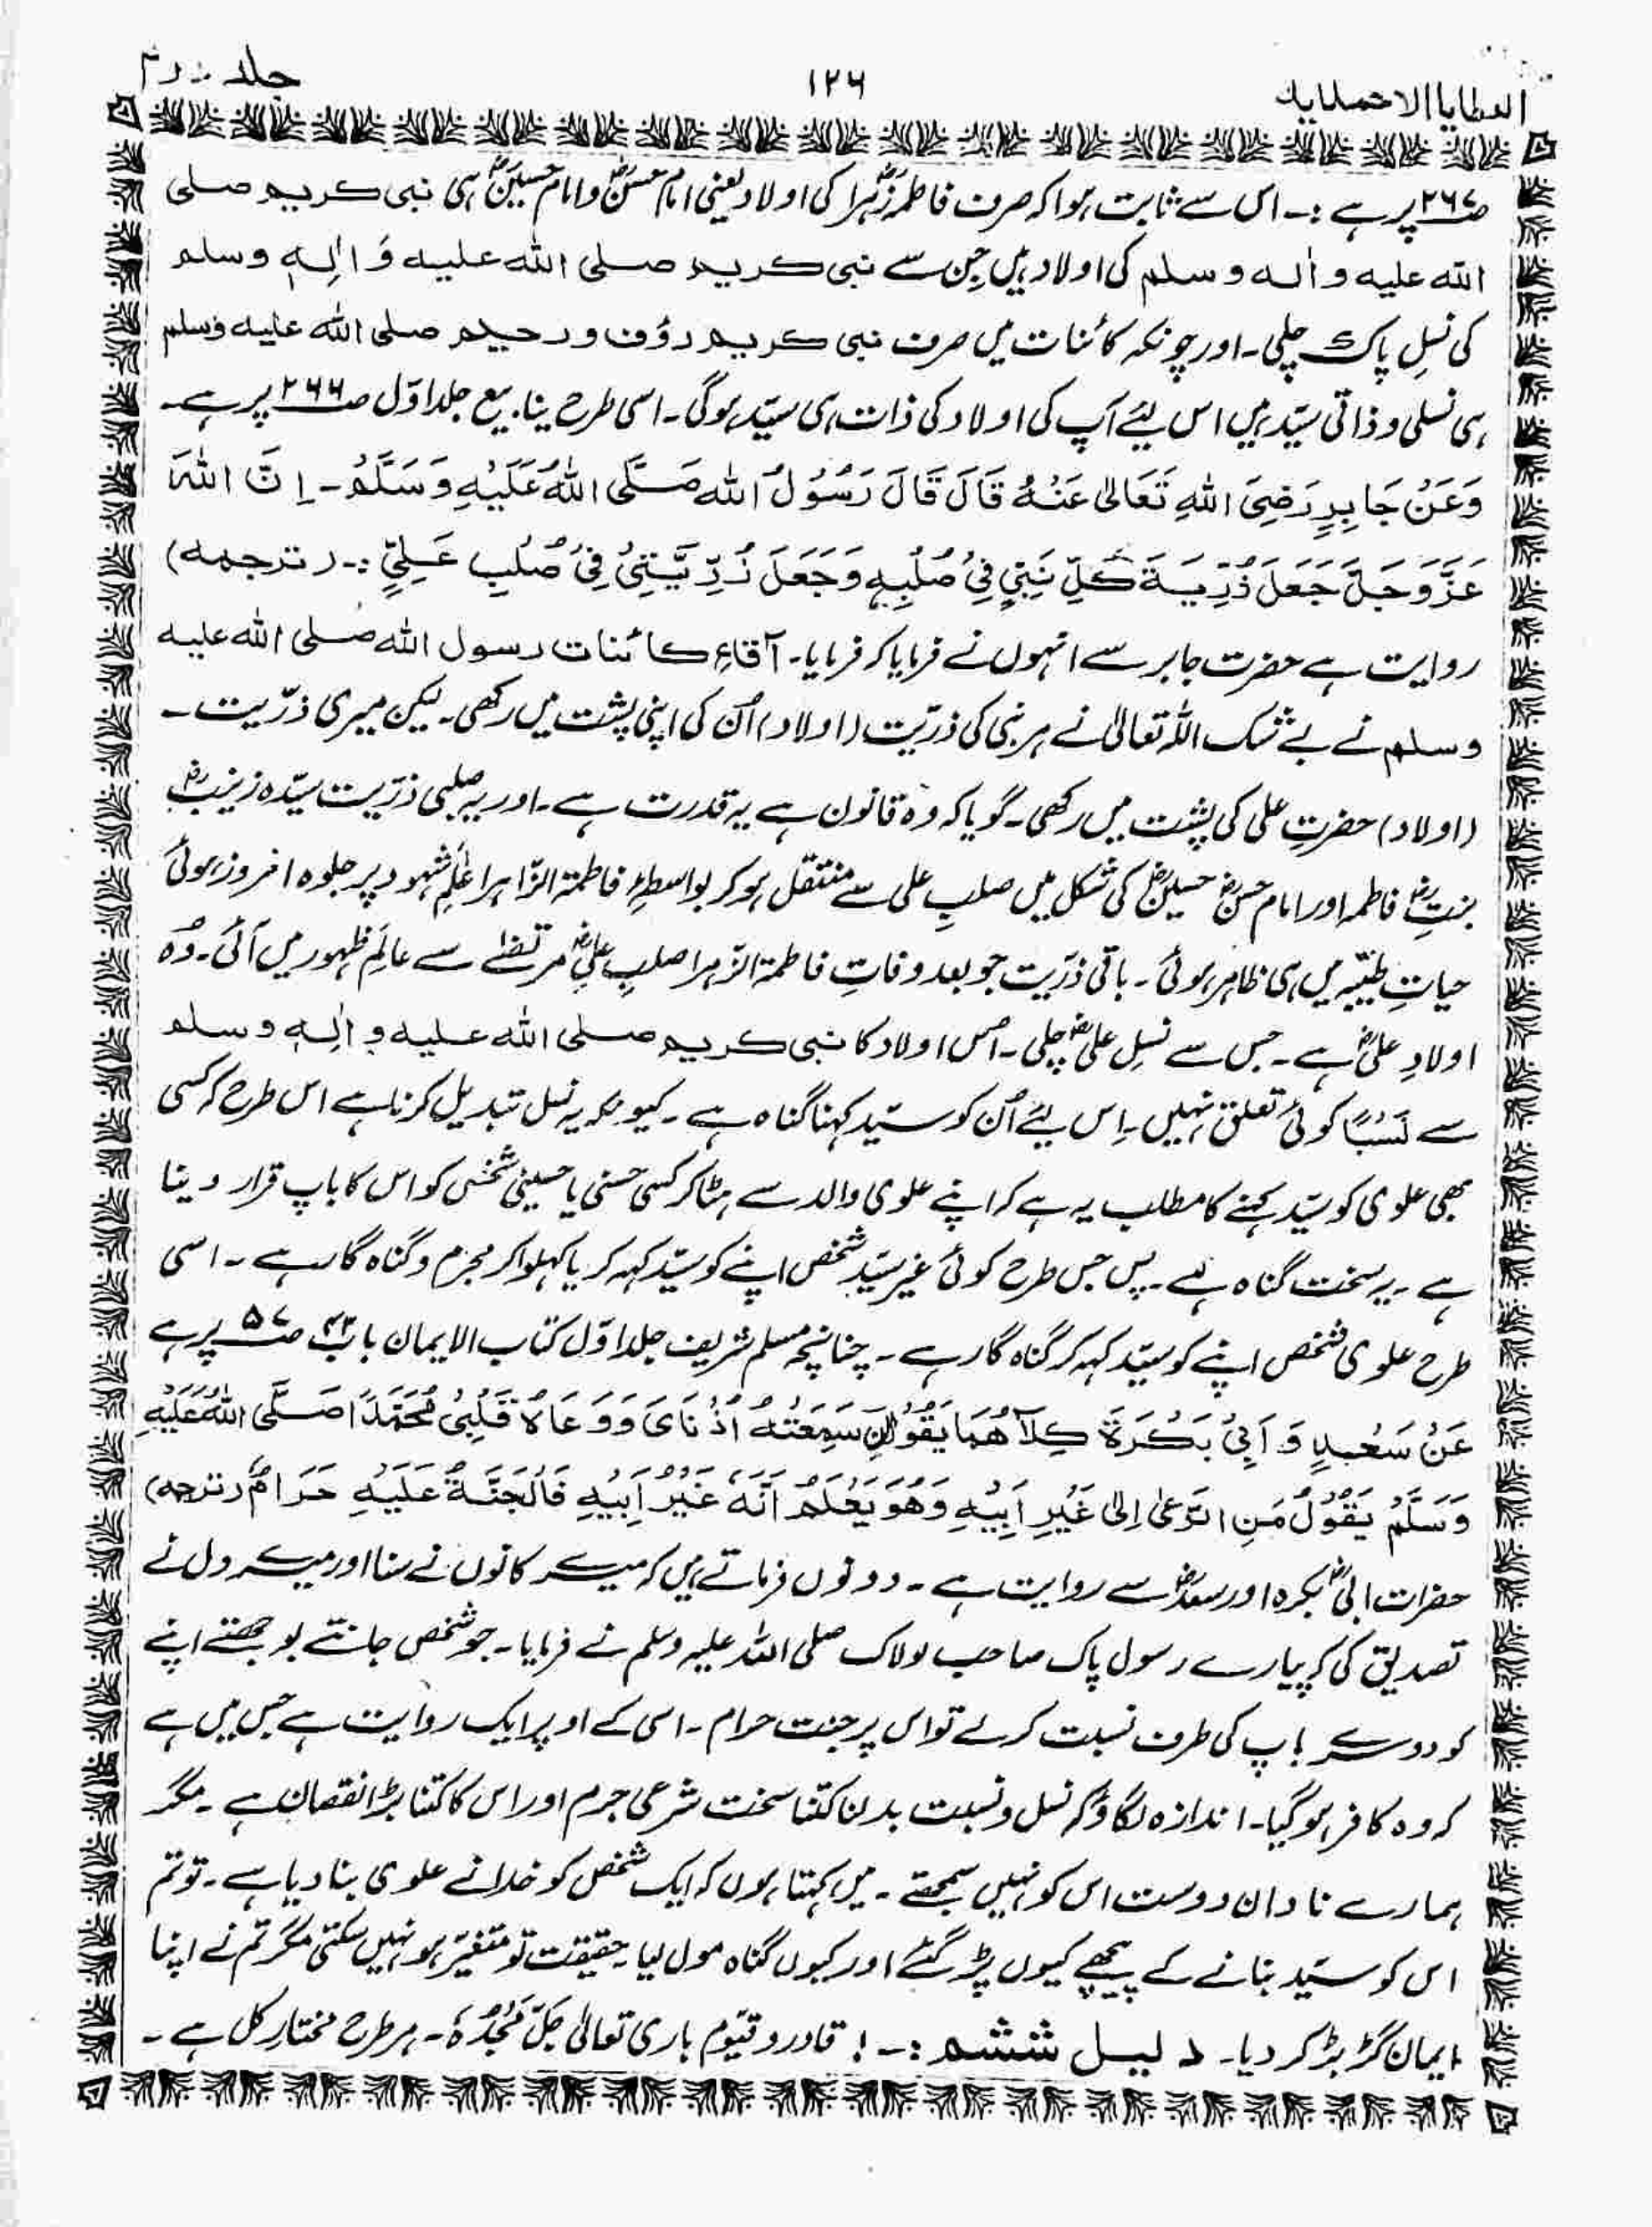 العطایا الاحمدیہ ۱۲۶ جلد دوم
صـ۲۶۷ پر ہے :۔ اس سے ثابت ہوا کہ صرف فاطمہ زہرا کی اولاد یعنی امام حسنؓ و امام حسینؓ ہی نبی کریم صلی
اللہ علیہ واٰلہ وسلم کی اولاد ہیں جن سے نبی کریم صلی اللہ علیہ وَ اٰلِہٖ وسلم
کی نسلِ پاک چلی۔ اور چونکہ کائنات میں صرف نبی کریم رؤف و رحیم صلی اللہ علیہ وسلم
ہی نسلی و ذاتی سیّد ہیں اس لیئے آپ کی اولاد کی ذات ہی سیّد ہوگی۔ اسی طرح ینابیع جلد اوّل صـ۲۶۶ پر ہے۔
وَعَنْ جَابِرٍ رَضِیَ اللہِ تَعَالیٰ عَنْہُ قَالَ قَالَ رَسُوْلُ اللہ صَلَّی اللہُ عَلَیْہِ وَسَلَّمْ۔ اِنَّ اللہَ
عَزَّوَجَلَّ جَعَلَ ذُرِّیَۃَ کُلِّ نَبِیٍ فِیْ صُلْبِہٖ وَجَعَلَ ذُرِّیَّتِیْ فِیْ صُلْبِ عَلِیٍّ :۔ (ترجمہ)
روایت ہے حضرت جابر سے انہوں نے فرمایا کہ فرمایا۔ آقاءِ کائنات رسول اللہ صلی اللہ علیہ
وسلم نے بے شک اللہ تعالیٰ نے ہر نبی کی ذرّیت (اولاد) اُن کی اپنی پشت میں رکھی۔ لیکن میری ذرّیت۔
(اولاد) حضرتِ علی کی پشت میں رکھی۔ گویا کہ وہ قانون ہے یہ قدرت ہے۔ اور یہ صلبی ذرّیت سیّدہ زینبؓ
بنتِ فاطمہ اور امام حسنؓ حسینؓ کی شکل میں صلبِ علی سے منتقل ہو کر بواسطۂ فاطمۃ الزّاہرا عَالَمِ شہود پر جلوہ افروز ہوئی
حیاتِ طیّبہ میں ہی ظاہر ہوئی۔ باقی ذرّیت جو بعد وفاتِ فاطمۃ الزّہرا صلبِ علیؓ مرتضٰے سے عالَمِ ظہور میں آئی۔ وُہ
اولادِ علیؓ ہے۔ جس سے نسلِ علیؓ چلی۔ اس اولاد کا نبی کریم صلی اللہ علیہ و اٰلِہٖ وسلم
سے نَسَبًا کوئی تعلق نہیں۔ اِس لیئے اُن کو سیّد کہنا گناہ ہے۔ کیونکہ یہ نسل تبدیل کرنا ہے اس طرح کہ کسی
بھی علوی کو سیّد کہنے کا مطلب یہ ہے کہ اپنے علوی والد سے ہٹا کر کسی حسنی یا حسینی شخص کو اس کا باپ قرار دینا
ہے۔ یہ سخت گناہ ہے۔ پس جس طرح کوئی غیر سیّد شخص اپنے کو سیّد کہہ کر یا کہلوا کر مجرم و گناہ گار ہے۔ اسی
طرح علوی شخص اپنے کو سیّد کہہ کر گناہ گار ہے۔ چنانچہ مسلم شریف جلد اوّل کتاب الایمان باب صـ۵۷ پر ہے
عَنْ سَعْدٍ وَ اَبِیْ بَکْرَۃَ کِلَاھُمَا یَقُوْلَانِ سَمِعَتْہُ اُذُنَایَ وَوَعَاہُ قَلْبِیْ مُحَمَّدًا صَلَّی اللہُ عَلَیْہِ
وَسَلَّمْ یَقُوْلُ مَنِ ادَّعٰی اِلیٰ غَیْرِ اَبِیْہِ وَھُوَ یَعْلَمُ اَنَّہٗ غَیْرُ اَبِیْہِ فَالْجَنَّۃُ عَلَیْہِ حَرَامٌ (ترجمہ)
حضرات ابیؓ بکرہ اور سعدؓ سے روایت ہے۔ دونوں فرماتے ہیں کہ میرے کانوں نے سنا اور میرے دل نے
تصدیق کی کہ پیارے رسول پاک صاحب لولاک صلی اللہ علیہ وسلم نے فرمایا۔ جو شخص جانتے بوجھتے اپنے
کو دوسرے باپ کی طرف نسبت کرے تو اس پر جنت حرام۔ اسی کے اوپر ایک روایت ہے جس میں ہے
کہ وہ کافر ہو گیا۔ اندازہ لگاؤ کہ نسل و نسبت بدلنا کتنا سخت شرعی جرم اور اس کا کتنا بڑا نقصان ہے۔ مگر
ہمارے نادان دوست اس کو نہیں سمجھتے۔ میں کہتا ہوں کہ ایک شخص کو خدا نے علوی بنا دیا ہے۔ تو تم
اس کو سیّد بنانے کے پیچھے کیوں پڑ گئے اور کیوں گناہ مول لیا۔ حقیقت تو متغیّر ہو نہیں سکتی مگر تم نے اپنا
ایمان گڑ بڑ کر دیا۔ دلیل ششم :۔! قادر و قیّوم باری تعالیٰ جَلَّ مَجْدُہٗ۔ ہر طرح مختارِ کل ہے۔